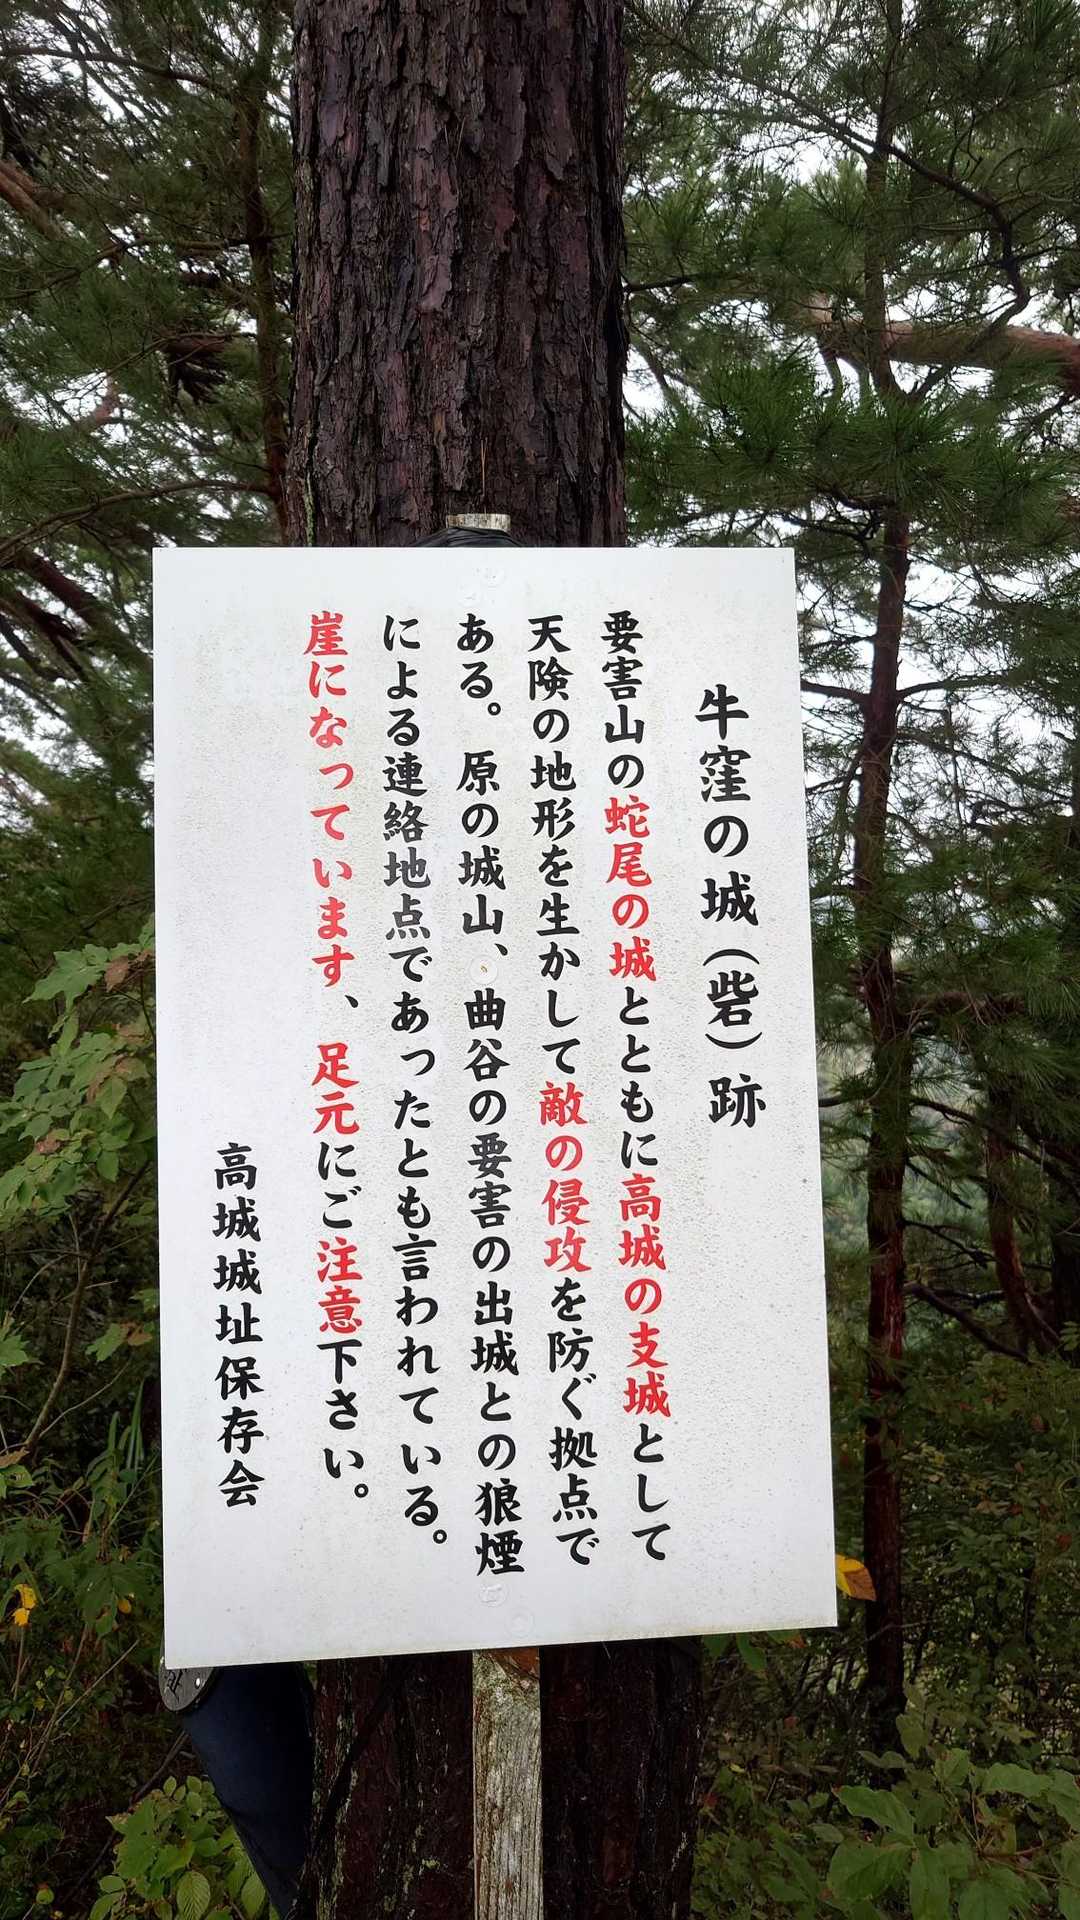 牛窪の城（砦）跡
要害山の蛇尾の城とともに高城の支城として
天険の地形を生かして敵の侵攻を防ぐ拠点で
ある。原の城山、曲谷の要害の出城との狼煙
による連絡地点であったとも言われている。
崖になっています、足元にご注意下さい。
高城城址保存会